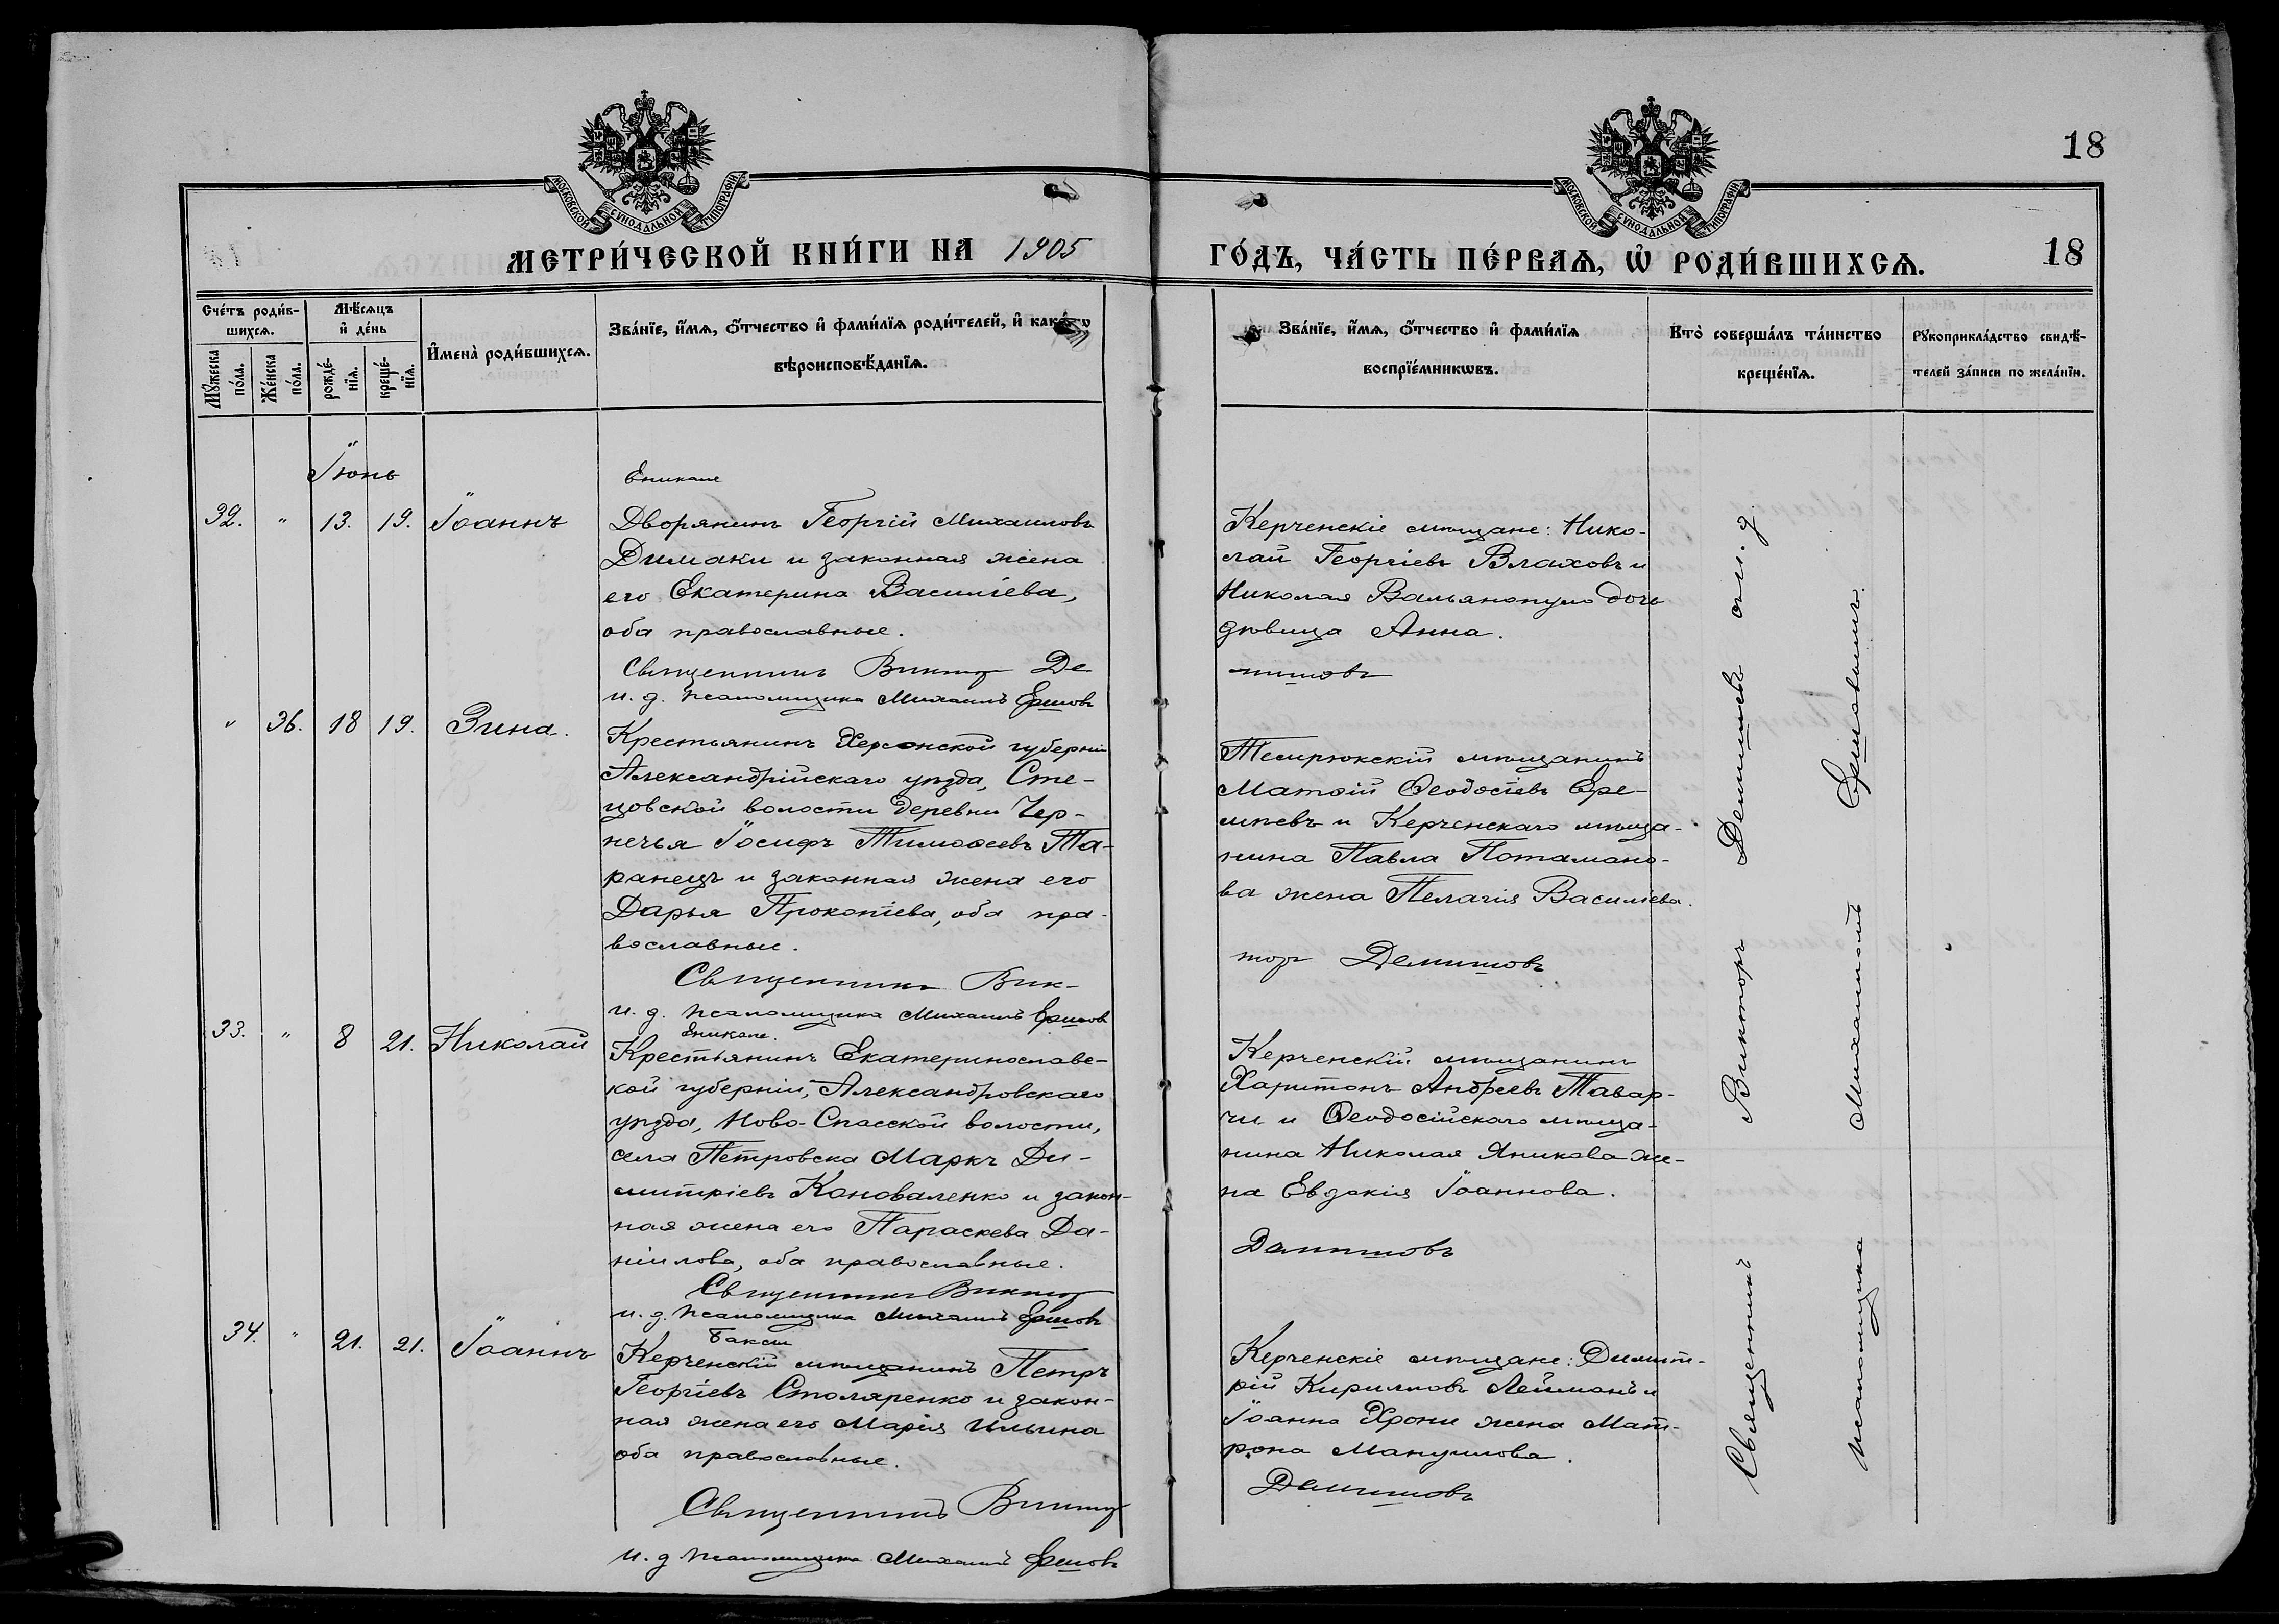 18
МОСКОВСКОЙ СУНОДАЛЬНОЙ ТИПОГРАФІИ
МОСКОВСКОЙ СУНОДАЛЬНОЙ ТИПОГРАФІИ
МЕТРИ́ЧЕСКОЙ КНИ́ГИ НА 1905
ГО́ДЪ, ЧА́СТЬ ПЕ́РВАѦ, Ѡ҆ РОДИ́ВШИХСѦ.
18
Сче́тъ роди́в-
шихсѧ.
Мꙋ́жеска по́ла.
Же́нска по́ла.
Мѣ́сѧцъ
и҆ де́нь
рожде́-
нїѧ.
креще́-
нїѧ.
И҆мена̀ роди́вшихсѧ.
Зва́нїе, и҆́мѧ, ѻ҆́тчество и҆ фами́лїѧ роди́телей, и҆ како́гѡ
вѣроисповѣ́данїѧ.
Зва́нїе, и҆́мѧ, ѻ҆́тчество и҆ фами́лїѧ
воспрїе́мникѡвъ.
Кто̀ соверша́лъ та́инство
креще́нїѧ.
Рꙋкоприкла́дство свидѣ́-
телей за́писи по жела́нїю.
Іюнь
Еникале
32. " 13. 19. Іоаннъ
Дворянинъ Георгій Михаиловъ
Димаки и законная жена
его Екатерина Василіева,
оба православные.
Священникъ Виктор Де
и. д. псаломщика Михаилъ Ершовъ
Керченскіе мѣщане: Нико-
лай Георгіевъ Влаховъ и
Николая Вальянопуло дочь
дѣвица Анна.
" 36. 18 19. Зина.
Крестьянинъ Херсонской губерніи
Александрійскаго уѣзда, Сте-
цовской волости деревни Чер-
нечья Іосифъ Тимоѳеевъ Та-
ранецъ и законная жена его
Дарья Прокопіева, оба пра-
вославные.
Священникъ Вик-
и. д. псаломщика Михаилъ Ершовъ
Темрюкскій мѣщанинъ
Матѳій Ѳеодосіевъ Ере-
мѣевъ и Керченскаго мѣща-
нина Павла Потамано-
ва жена Пелагія Василіева.
торъ Демишовъ
Еникале.
33. " 8 21. Николай
Крестьянинъ Екатеринославс-
кой губерніи, Александровскаго
уѣзда, Ново-Спасской волости,
села Петровска Маркъ Ди-
митріевъ Коноваленко и закон-
ная жена его Параскева Да-
ніилова, оба православные.
Священникъ Виктор
и. д. псаломщика Михаилъ Ершовъ
Керченскій мѣщанинъ
Харитонъ Андреевъ Тавар-
чи и Ѳеодосійскаго мѣща-
нина Николая Яникова же-
на Евдокія Іоаннова.
Демишовъ
Бакси
34. " 21. 21. Іоаннъ
Керченскій мѣщанинъ Петръ
Георгіевъ Столяренко и закон-
ная жена его Марія Ильина
оба православные.
Священникъ Виктор
и. д. псаломщика Михаилъ Ершовъ
Керченскіе мѣщане: Димит-
рій Кирилловъ Лейманъ и
Іоанна Хрони жена Мат-
рона Мануилова.
Демишовъ
Священникъ Викторъ Демишевъ
псаломщика Михаиломъ Ершовымъ.